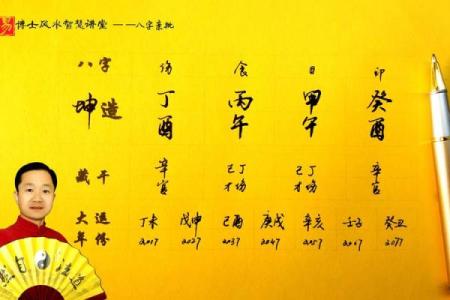 易 博士风水智慧讲堂 ——八字亲批
八字 伤 食 日 印
坤造 丁酉 丙午 甲午 癸酉
藏干 辛 己丁 己丁 辛
官 才伤 才伤 官
大运 丁未 戊申 己酉 庚戌 辛亥 壬子 癸丑
年份 2017 2027 2037 2047 2057 2067 2077
道法自然